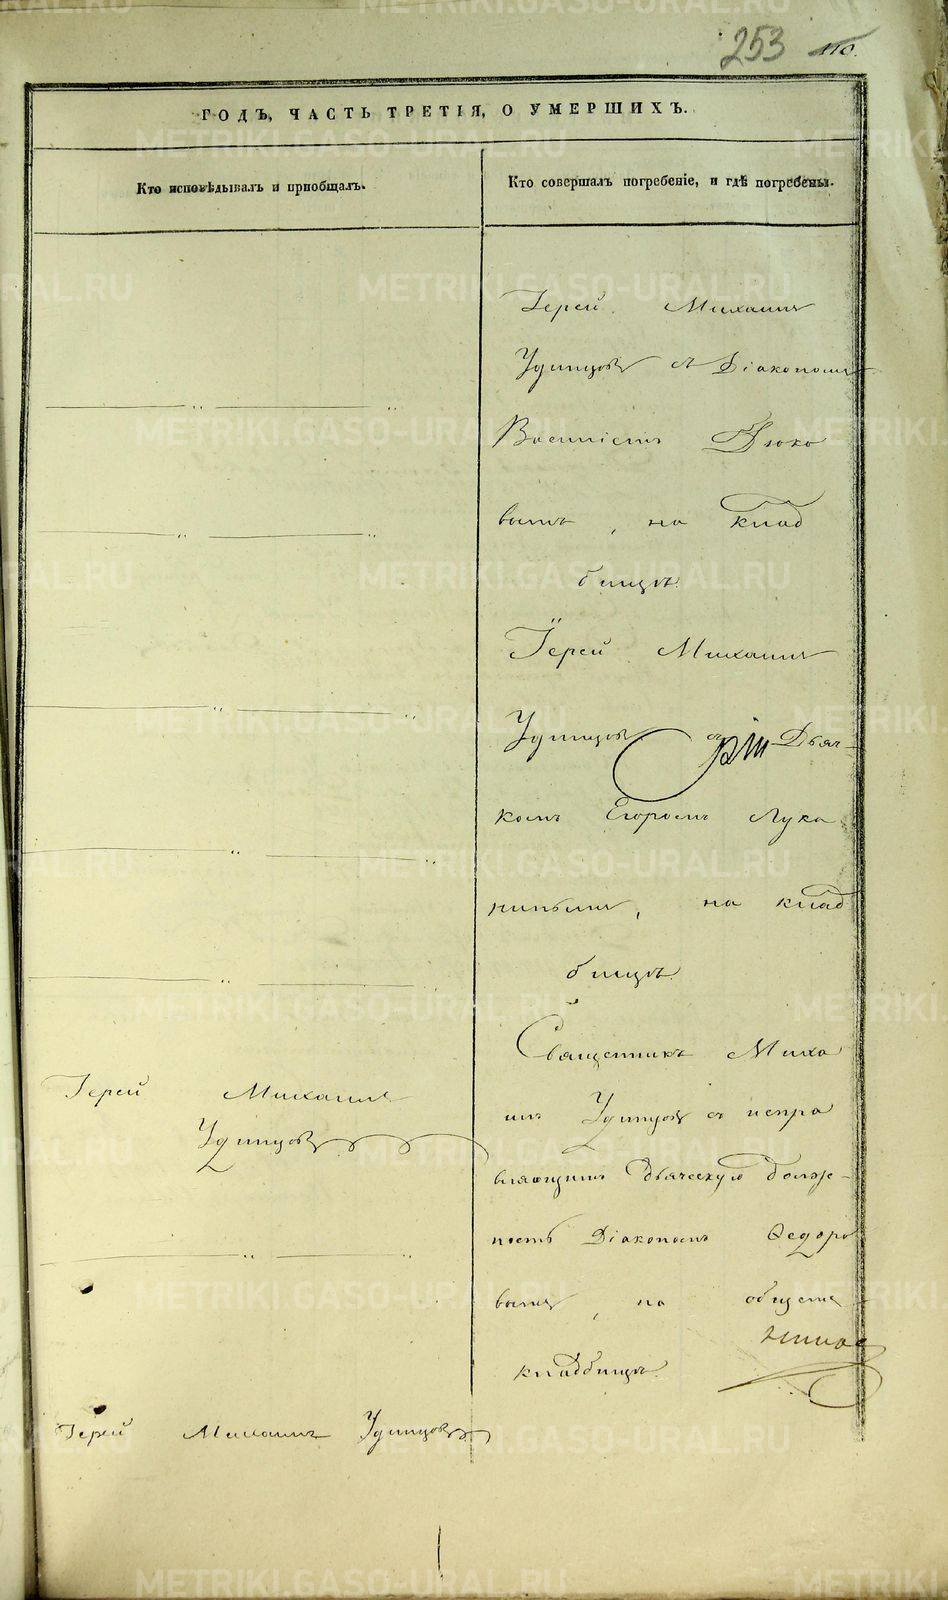 253 110.
ГОДЪ, ЧАСТЬ ТРЕТІЯ, О УМЕРШИХЪ.
Кто исповѣдывалъ и пріобщалъ.
Кто совершалъ погребеніе, и гдѣ погребены.
Іерей Михаилъ
Удинцовъ съ Діакономъ
Ву
вымъ, на клад
бищѣ.
Іерей Михаилъ
Удинцовъ съ Дьяч-
комъ Егоромъ Лука
нинымъ, на клад
бищѣ.
Священникъ Миха
илъ Удинцовъ съ испра
вляющимъ Дьяческую долж-
ность Діакономъ Ѳедоро
вымъ, на общемъ
кладбищѣ.
Іерей Михаилъ
Удинцовъ
Іерей Михаилъ Удинцовъ
METRIKI.GASO-URAL.RU